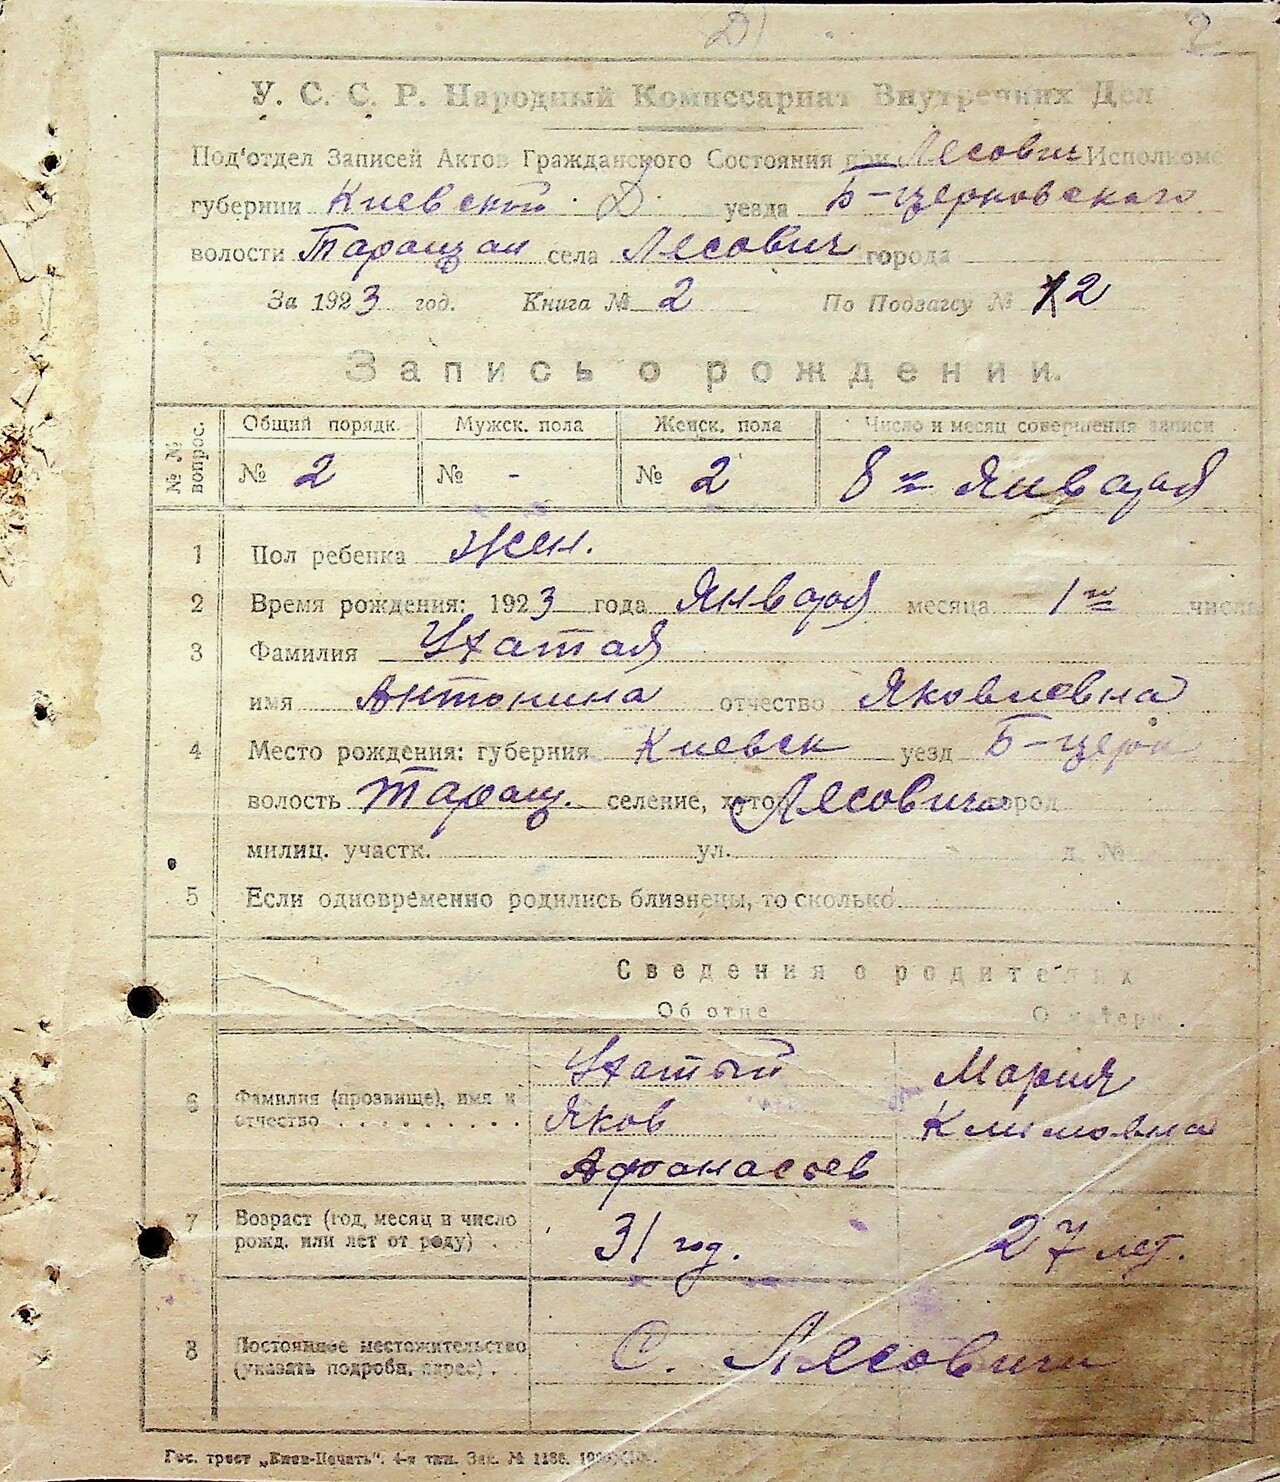 2
У. С. С. Р. Народный Комиссариат Внутренних Дел
Под'отдел Записей Актов Гражданского Состояния при Лесович Исполкоме
губернии Киевской уезда Б-церковского
волости Таращан села Лесович города
За 1923 год. Книга № 2 По Подзагсу № 2
Запись о рождении.
№ № вопрос. Общий порядк. Мужск. пола Женск. пола Число и месяц совершения записи
№ 2 № - № 2 8го Января
1 Пол ребенка Жен.
2 Время рождения: 1923 года Января месяца 1го числа
3 Фамилия Ухатая
имя Антонина отчество Яковлевна
4 Место рождения: губерния Киевск уезд Б-церк
волость Таращ. селение, хутор Лесовичи город
милиц. участк. ул. д. №
5 Если одновременно родились близнецы, то сколько
Сведения о родителях
Об отце О матери
6 Фамилия (прозвище), имя и отчество
Ухатый Мария
Яков Климовна
Афонасьев
7 Возраст (год, месяц и число рожд. или лет от роду) 31 год. 27 лет.
8 Постоянное местожительство (указать подробн. адрес) С. Лесовичи
Гос. трест „Киев-Печать“. 4-я тип. Зак. № 1186.